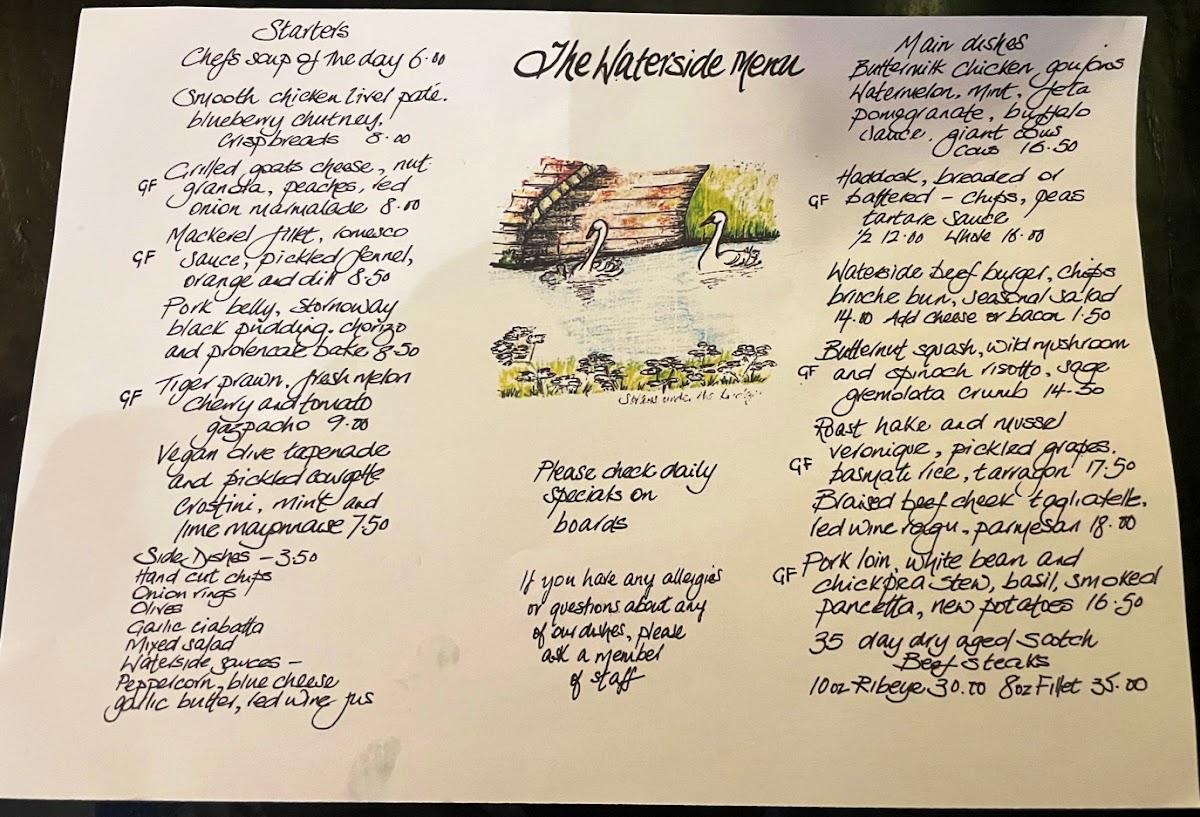 Starters
Chefs soup of the day 6.00
Smooth chicken liver paté.
blueberry chutney,
crispbreads 8.00
Grilled goats cheese, nut
GF granola, peaches, red
onion marmalade 8.00
Mackerel fillet, romesco
GF sauce, pickled fennel,
orange and dill 8.50
Pork belly, stornoway
black pudding, chorizo
and provencal bake 8.50
Tiger prawn, fresh melon
GF cherry and tomato
gazpacho 9.00
Vegan olive tapenade
and pickled courgette
Crostini, mint and
lime mayonnaise 7.50
Side Dishes - 3.50
Hand cut chips
Onion rings
Olives
Garlic ciabatta
Mixed salad
Waterside sauces -
Peppercorn, blue cheese
garlic butter, red wine jus
The Waterside Menu
Please check daily
specials on
boards
If you have any allergies
or questions about any
of our dishes, please
ask a member
of staff
Main dishes
Buttermilk chicken goujons
Watermelon, mint, feta
pomegranate, buffalo
sauce, giant cous
cous 16.50
Haddock, breaded or
GF battered - chips, peas
tartare sauce
1/2 12.00 Whole 16.00
Waterside beef burger, chips
brioche bun, seasonal salad
14.00 Add cheese or bacon 1.50
Butternut squash, wild mushroom
GF and spinach risotto, sage
gremolata crumb 14.50
Roast hake and mussel
veronique, pickled grapes.
GF basmati rice, tarragon 17.50
Braised beef cheek tagliatelle,
red wine ragu, parmesan 18.00
GF Pork loin, white bean and
chickpea stew, basil, smoked
pancetta, new potatoes 16.50
35 day dry aged Scotch
Beef steaks
10oz Ribeye 30.00 8oz Fillet 35.00